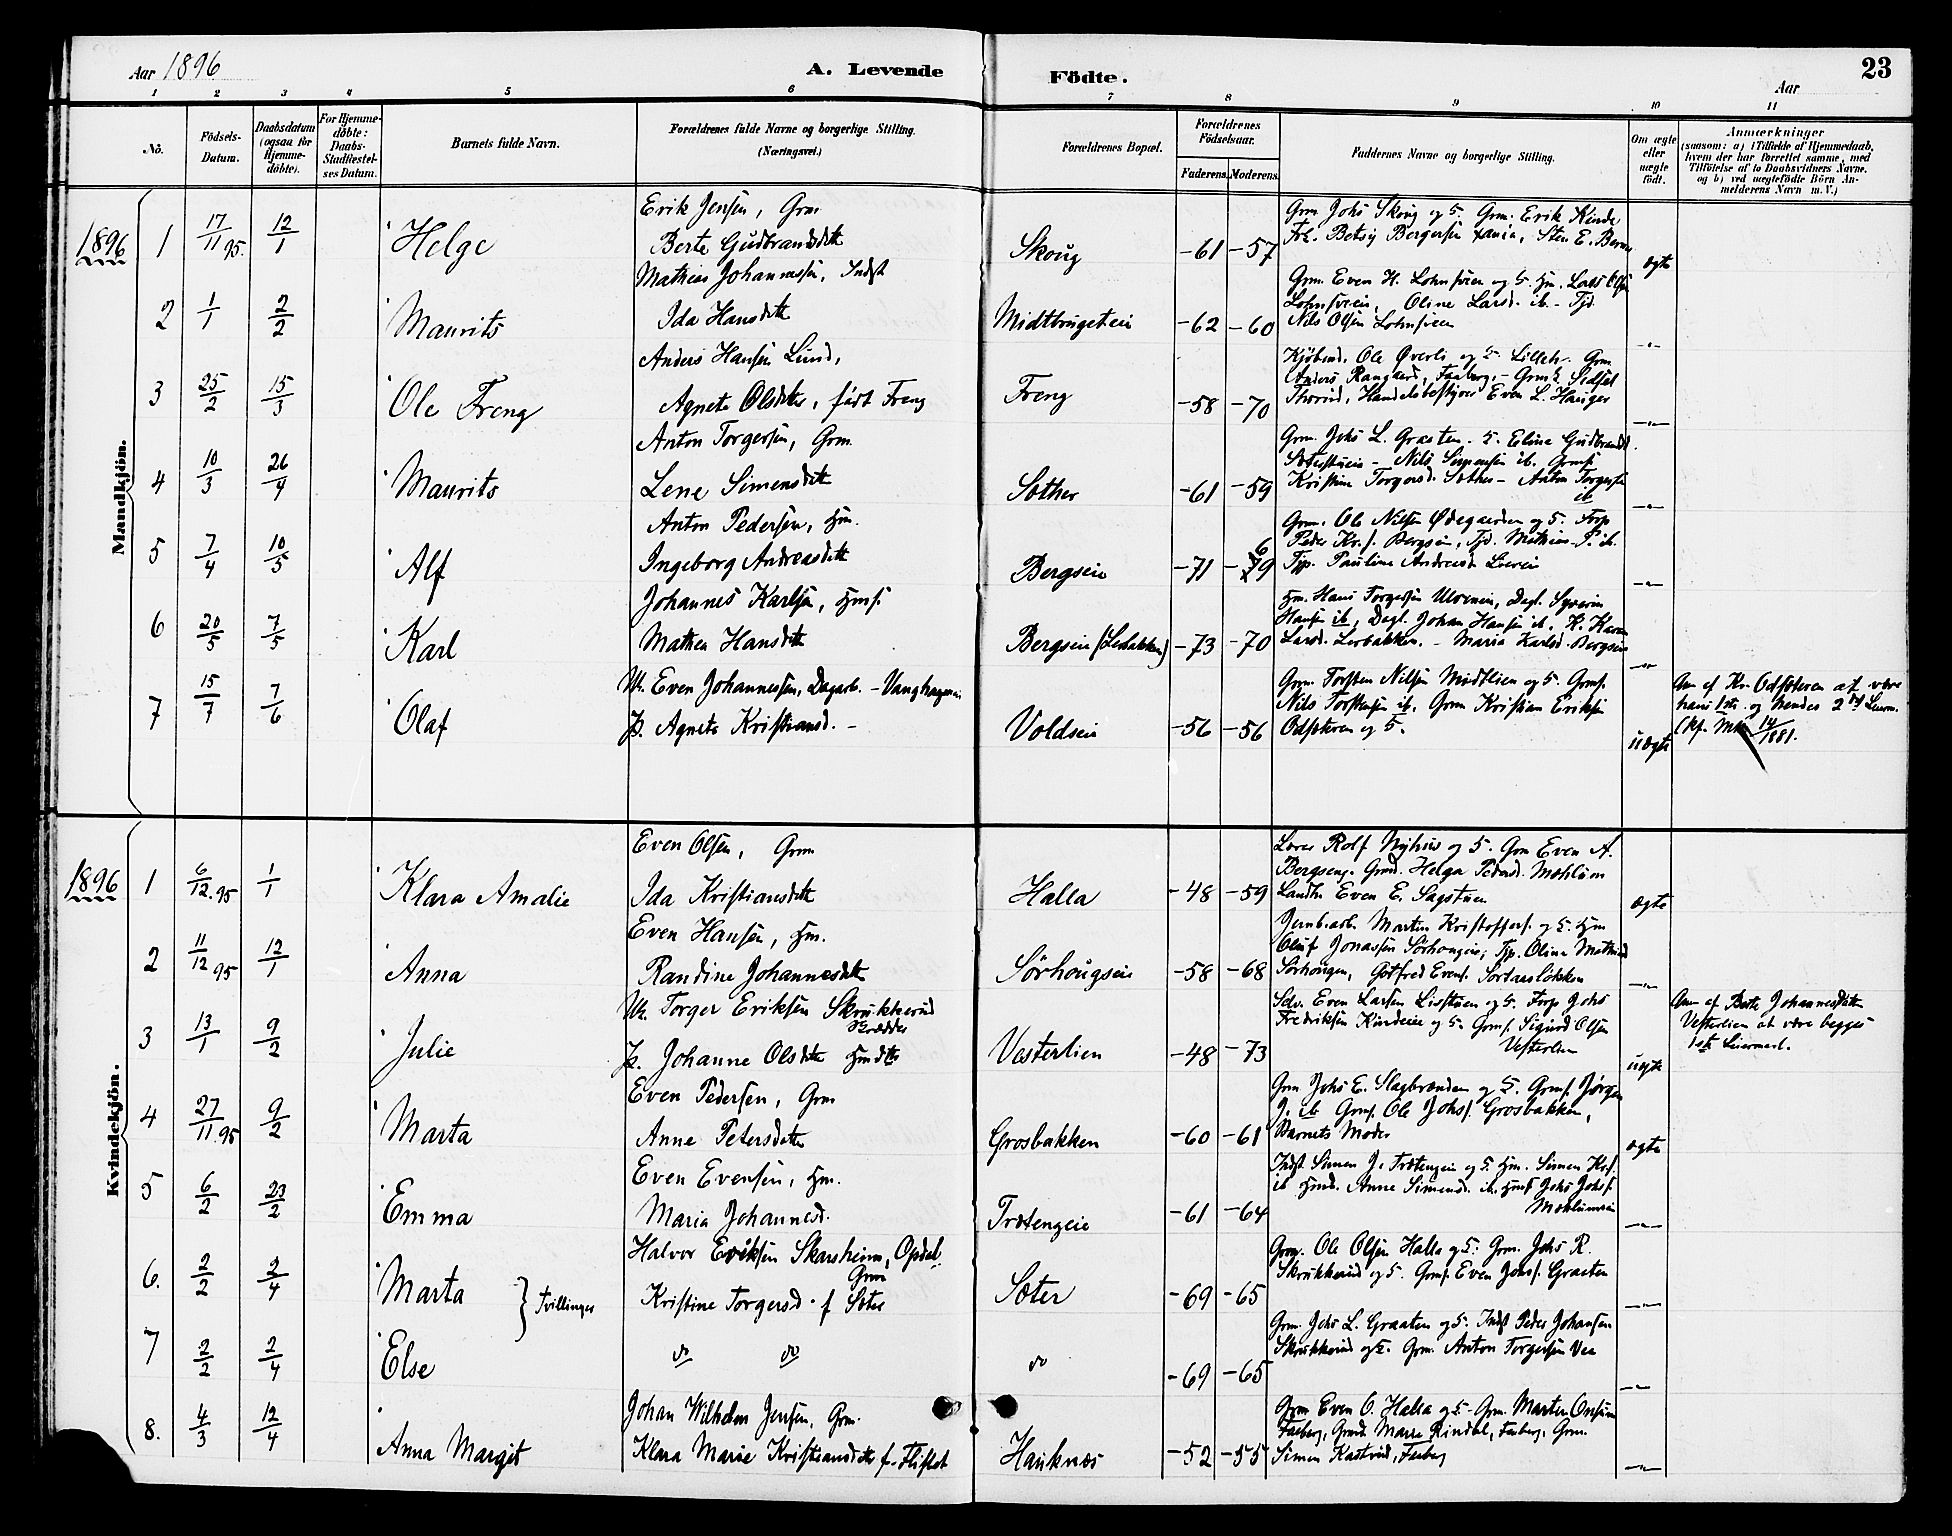 Aar 1896
A. Levende
Födte.
Aar
23
1 2 3 4 5 6 7 8 9 10 11
No.
Födsels-Datum.
Daabsdatum (ogsaa for Hjemmedöbte).
For Hjemmedöbte: Daabs-Stadfestelses Datum.
Barnets fulde Navn.
Forældrenes fulde Navne og borgerlige Stilling. (Næringsvei.)
Forældrenes Bopæl.
Forældrenes Födselsaar.
Faderens. Moderens.
Faddernes Navne og borgerlige Stilling.
Om ægte eller uægte födt.
Anmærkninger (saasom: a) i Tilfælde af Hjemmedaab, hvem der har forrettet samme, med Tilföielse af to Daabsvidners Navne, og b) ved uægtefödte Börn Anmelderens Navn m. V.)
Mandkjön.
1896
1 17/11 95. 12/1 Helge
Erik Jensen, Grm
Berte Gudbrandsdttr
Skoug -61 -57
Grm Johs Skoug og 5. Grm. Erik Kinde
Frk. Betsy Bergersen
ægte
2 1/1 2/2 Maurits
Mathias Johannessen, Indst
Ida Hansdttr
Midtbrugeteie -62 -60
Grm. Even H.
Oline Larsd. ib. - Tjd.
Nils Olsen
-"-
3 25/2 15/3 Ole Freng
Anders Hansen Lund,
Agnete Olsdtter, født Freng
Freng -58 -70
Kjøbmd. Ole Øverli og 5. Lilleh. Grm
Anders Rangaard, Faaberg, -
Handelsbestyrer Even L. Hauger
-"-
4 10/3 26/4 Maurits
Anton Torgersen, Grm.
Lene Simensdttr
Sæther -61 -59
Grm. Johs L. Graaten. 5. Eline Gudbrandsd.
Nils Simensen ib. Grmf
Kristine Torgersd. Sæther - Anton Torgersen
ib
-"-
5 7/4 10/5 Alf
Anton Pedersen, Hm.
Ingeborg Andreasdttr
Bergseie -71 -69
Grm. Ole Nilsen Ødegaarden og 5. Forp
Peder Kr.s. Bergseie, Tjd. Mathias P. ib.
Tjp. Pauline Andreasd.
-"-
6 20/5 7/5 Karl
Johannes Karlsen, Hmf.
Mathea Hansdttr
Bergseie (Lerbakken) -73 -70
Hm. Hans Torgersen Ulveneie, Dagl.
Hansen ib, Dagl. Johan Hansen ib. K. Karen
Larsd. Lerbakken. - Maria Karlsd. Bergseie
-"-
7 15/7 7/6 Olaf
Uk. Even Johannessen, Dagarb. -
P. Agnete Kristiansd. -
Voldseie -56 -56
Grm. Torsten Nilsen Midtlien og 5. Grmf.
Nils Torstensen ib. Grm Kristian Eriksen
Odsæteren og 5.
uægte
Anm af Kr. Odsæteren at være
hans 1ste og hendes 2det Leierm.
14/1881.
Kvindekjön.
1896
1 6/12.95 1/1 Klara Amalie
Even Olsen, Grm
Ida Kristiansdttr
Halla -48 -59
Lærer Rolf Nyhus og 5. Grm Even A.
Bergseng. Grmd. Helga Pedersd. Mæhlum
Landh. Even E. Sagstuen
ægte
2 11/12 95 12/1 Anna
Even Hansen, Hm.
Randine Johannesdttr
Sörhougseie -58 -68
Jernbarb. Martin Kristoffers. og 5. Hm
Oluf Jonassen Sörhougeie, Tjp. Oline Mathiasd
Sörhougen, Gotfred Evens.
-"-
3 13/1 9/2 Julie
Uk. Torger Eriksen Skrukkerud
Skrædder
P. Johanne Olsdtter Hmdtr
Vesterlien -48 -73
Selv. Even Larsen Lisstuen og 5. Forp Johs
Fredriksen Kindeie og 5. Grmf. Sigurd Olsen
Vesterlien
uægte
Anm af Berte Johannesdatter
Vesterlien at være begges
1ste Leiermaal.
4 27/11.95 9/2 Marta
Even Pedersen, Grm
Anne Petersdtter
Grosbakken -60 -61
Grm Johs E. Slagbrenden og 5. Grmf. Jørgen
J. ib Grmf. Ole Johs. Grosbakken,
Barnets Moder
ægte
5 6/2 23/2 Emma
Even Evensen, Hm.
Maria Johannesd.
Trætengeie -61 -64
Indst Simen J. Trætengeie og 5. Hm. Simen Krs.
ib Hmd. Anne Simensd. ib. Hmf Johs Johs.
Mæhlumseie
-"-
6. 2/2 2/4 Marta
} Tvillinger
Halvor Eriksen Skarsheim, Opdal,
Grm
Kristine Torgersd. f Sæter
Sæter -69 -65
Grm. Ole Olsen Halla og 5: Grm. Johs R.
Skrukkerud og 5. Grmf. Even Johs. Graaten
-"-
7 2/2 2/4 Else
do do
do -69 -65
Grm. Johs L. Graaten og 5. Indst Peder Johansen
Skrukkerud og 5. Grm. Anton Torgersen
-"-
8. 4/3 12/4 Anna Margit
Johan Wilhelm Jensen, Grm.
Klara Marie Kristiansdtter f. Fliflet
Hauknæs -52 -55
Grm Even O. Halla og 5. Grm. Marten
Faaberg, Grmd. Marie Rindal, Faaberg, Grm.
Simen Kastrud, Faaberg
-"-